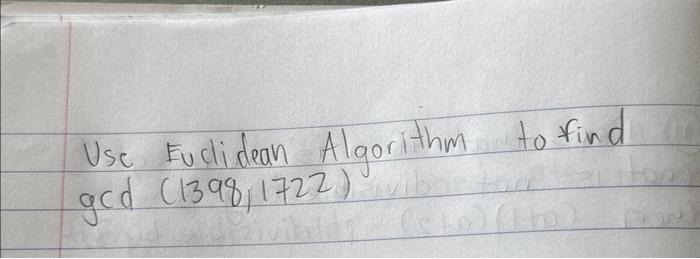 Use Euclidean Algorithm to find
gcd (1398, 1722)